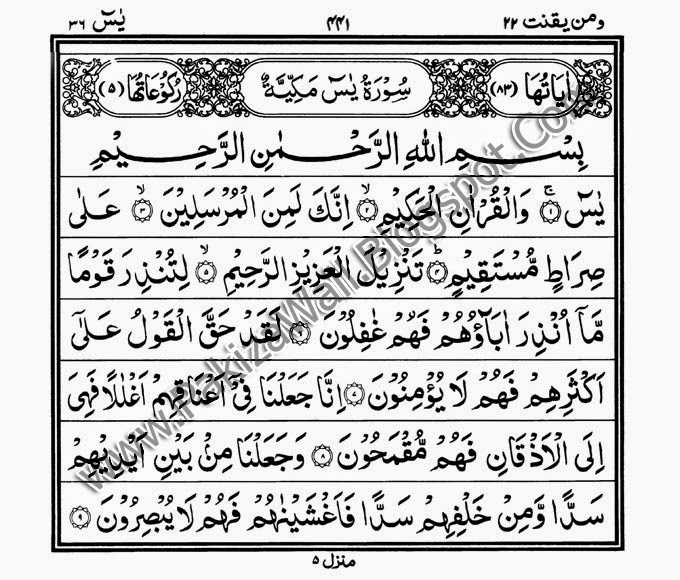 ومن يقنت ٢٢ ٤٤١ يٰسٓ ٣٦
اٰيَاتُهَا (٨٣) سُوْرَةُ يٰسٓ مَكِّيَّةٌ رُكُوْعَاتُهَا (٥)
بِسْمِ اللّٰهِ الرَّحْمٰنِ الرَّحِيْمِ
يٰسٓ ۚ ﴿١﴾ وَالْقُرْاٰنِ الْحَكِيْمِ ۙ ﴿٢﴾ اِنَّكَ لَمِنَ الْمُرْسَلِيْنَ ۙ ﴿٣﴾ عَلٰى
صِرَاطٍ مُّسْتَقِيْمٍ ؕ ﴿٤﴾ تَنْزِيْلَ الْعَزِيْزِ الرَّحِيْمِ ۙ ﴿٥﴾ لِتُنْذِرَ قَوْمًا
مَّاۤ اُنْذِرَ اٰبَآؤُهُمْ فَهُمْ غٰفِلُوْنَ ﴿٦﴾ لَقَدْ حَقَّ الْقَوْلُ عَلٰٓى
اَكْثَرِهِمْ فَهُمْ لَا يُؤْمِنُوْنَ ﴿٧﴾ اِنَّا جَعَلْنَا فِيْۤ اَعْنَاقِهِمْ اَغْلٰلًا فَهِيَ
اِلَى الْاَذْقَانِ فَهُمْ مُّقْمَحُوْنَ ﴿٨﴾ وَجَعَلْنَا مِنْۢ بَيْنِ اَيْدِيْهِمْ
سَدًّا وَّمِنْ خَلْفِهِمْ سَدًّا فَاَغْشَيْنٰهُمْ فَهُمْ لَا يُبْصِرُوْنَ ﴿٩﴾
منزل ٥
www.PakizaWall.Blogspot.Com